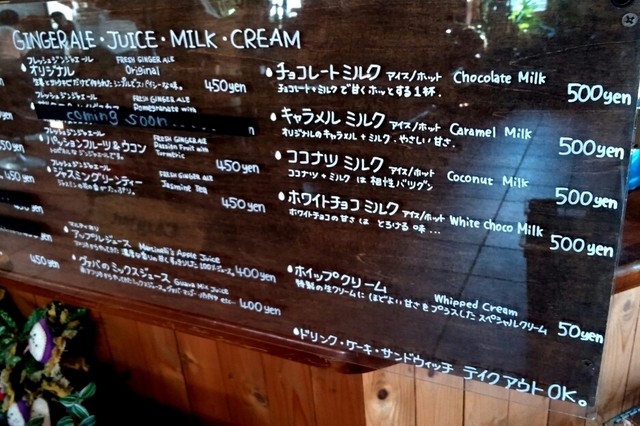 GINGERALE・JUICE・MILK・CREAM
フレッシュジンジャエール FRESH GINGER ALE
オリジナル Original
450yen
フレッシュジンジャエール FRESH GINGER ALE
Pomegranate with
coming soon
フレッシュジンジャエール FRESH GINGER ALE
パッションフルーツ&ウコン Passion Fruit with Turmeric
450yen
フレッシュジンジャエール FRESH GINGER ALE
ジャスミングリーンティー Jasmine Tea
450yen
マルティネリ
アップルジュース Martinelli's Apple Juice
400yen
グァバのミックスジュース Guava Mix Juice
400yen
チョコレートミルク アイス/ホット Chocolate Milk
チョコレート+ミルクで甘くホッとする1杯.
500yen
キャラメル ミルク アイス/ホット Caramel Milk
オリジナルのキャラメル+ミルク.やさしい甘さ.
500yen
ココナツ ミルク アイス/ホット Coconut Milk
ココナツ+ミルクは相性バツグン
500yen
ホワイトチョコ ミルク アイス/ホット White choco Milk
ホワイトチョコの甘さは とろける味...
500yen
ホイップクリーム Whipped Cream
特製の生クリームにほどよい甘さをプラスした スペシャルクリーム
50yen
ドリンク・ケーキ・サンドウィッチ テイクアウトOK。
450yen